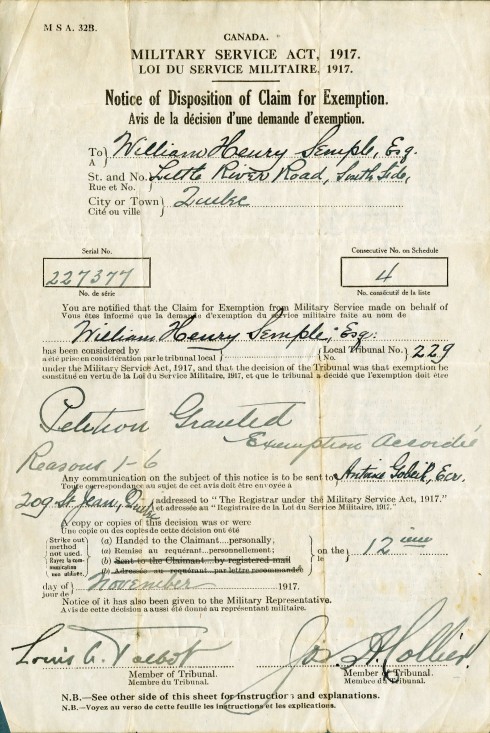 M S A. 32B.
CANADA.
MILITARY SERVICE ACT, 1917.
LOI DU SERVICE MILITAIRE, 1917.
Notice of Disposition of Claim for Exemption.
Avis de la décision d'une demande d'exemption.
To William Henry Semple, Esq.
A
St. and No. Little River Road, South Side,
Rue et No.
City or Town Quebec
Cité ou ville
Serial No. Consecutive No. on Schedule
227377 4
No. de série No. consécutif de la liste
You are notified that the Claim for Exemption from Military Service made on behalf of
Vous êtes informé que la demande d'exemption du service militaire faite au nom de
William Henry Semple, Esq.
has been considered by Local Tribunal No. 229
a été prise en considération par le tribunal local No.
under the Military Service Act, 1917, and that the decision of the Tribunal was that exemption be
constitué en vertu de la Loi du Service Militaire, 1917, et que le tribunal a décidé que l'exemption doit être
Petition Granted
Exemption Accordée
Reasons 1-6
Any communication on the subject of this notice is to be sent to Antoine Gobeil, Ecr.
Toute correspondance au sujet de cet avis doit être envoyée à
209 St Jean, Quebec addressed to "The Registrar under the Military Service Act, 1917."
et adressée au "Registraire de la Loi du Service Militaire, 1917."
A copy or copies of this decision was or were
Une copie ou des copies de cette décision ont été
Strike out method not used. (a) Handed to the Claimant...personally,
Rayez la communication non utilisée. (a) Remise au requérant...personnellement;
(b) Sent to the Claimant...by registered mail
(b) Adressée au requérant par lettre recommandée
on the 12 ième
le
day of November 1917.
jour de
Notice of it has also been given to the Military Representative.
Avis de cette décision a aussi été donné au représentant militaire.
Louis A. Talbot Jos. A. Collier
Member of Tribunal. Member of Tribunal.
Membre du Tribunal. Membre du Tribunal.
N.B.—See other side of this sheet for instructions and explanations.
N.B.—Voyez au verso de cette feuille les instructions et les explications.